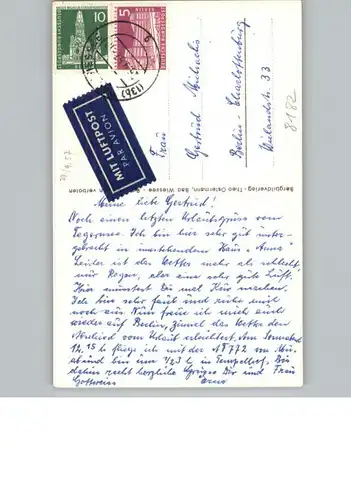 10
5
MIT LUFTPOST
PAR AVION
Frau
Gertrud Michaelis
Berlin-Charlottenburg
Wielandstr. 33
8182
Bergbildverlag Theo Ostermann, Bad Wiessee
verboten
Meine liebe Gertrud!
Noch einen letzten Urlaubsgruss vom
Tegernsee. Ich bin hier sehr gut unter-
gebracht in umstehendem Haus "Anna"
Leider ist das Wetter mehr als schlecht,
nur Regen, aber eine sehr gute Luft.
Hier müsstest Du mal Kur machen.
Ich bin sehr faul und ruhe mich
noch aus. Nun freue ich mich auch
wieder auf Berlin, zumal das Wetter den
Abschied vom Urlaub erleichtert. Am Sonnabend
12.15 h fliege ich mit der 772 von Mün-
und bin um 1/23 h in Tempelhof. Bis
dahin recht herzliche Grüsse Dir und Frau
Gottweiss